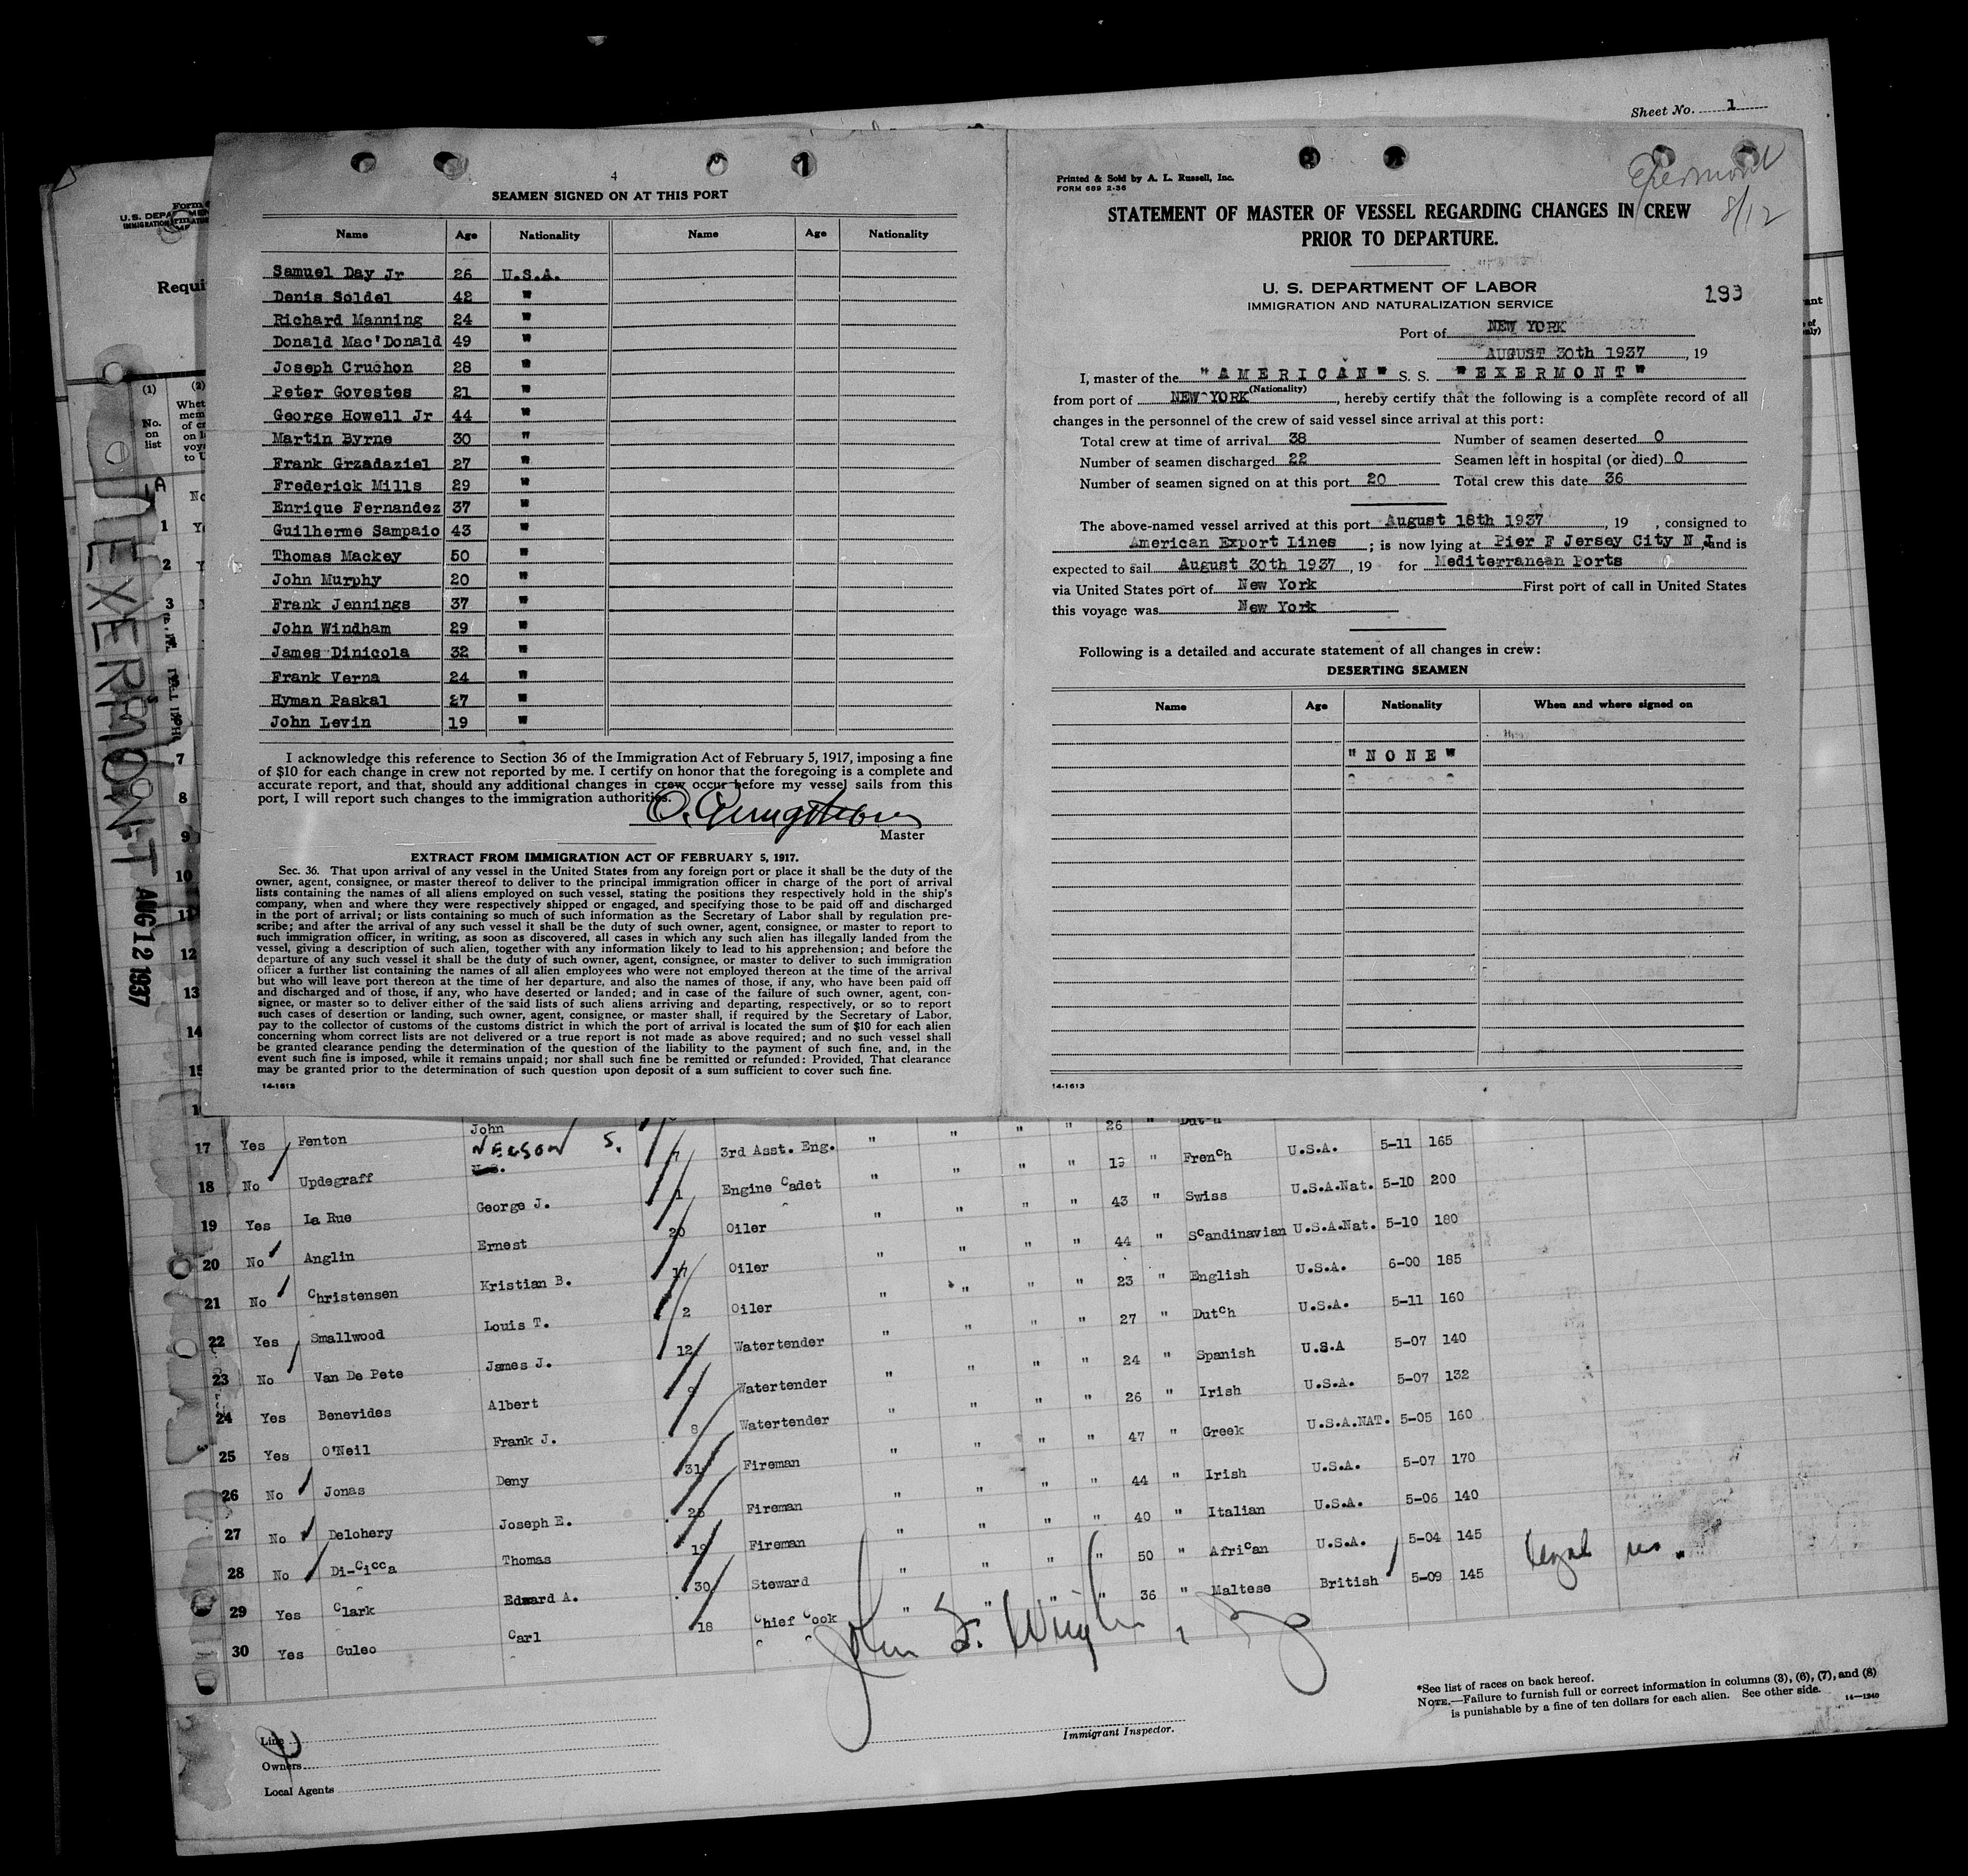 Sheet No. 1
4
SEAMEN SIGNED ON AT THIS PORT
Name Age Nationality Name Age Nationality
Samuel Day Jr 26 U.S.A.
Denis Soldel 42 "
Richard Manning 24 "
Donald Mac'Donald 49 "
Joseph Cruchon 28 "
Peter Govestes 21 "
George Howell Jr 44 "
Martin Byrne 30 "
Frank Grzadaziel 27 "
Frederick Mills 29 "
Enrique Fernandez 37 "
Guilherme Sampaio 43 "
Thomas Mackey 50 "
John Murphy 20 "
Frank Jennings 37 "
John Windham 29 "
James Dinicola 32 "
Frank Verna 24 "
Hyman Paskal 27 "
John Levin 19 "
I acknowledge this reference to Section 36 of the Immigration Act of February 5, 1917, imposing a fine
of $10 for each change in crew not reported by me. I certify on honor that the foregoing is a complete and
accurate report, and that, should any additional changes in crew occur before my vessel sails from this
port, I will report such changes to the immigration authorities.
Master
EXTRACT FROM IMMIGRATION ACT OF FEBRUARY 5, 1917.
Sec. 36. That upon arrival of any vessel in the United States from any foreign port or place it shall be the duty of the
owner, agent, consignee, or master thereof to deliver to the principal immigration officer in charge of the port of arrival
lists containing the names of all aliens employed on such vessel, stating the positions they respectively hold in the ship's
company, when and where they were respectively shipped or engaged, and specifying those to be paid off and discharged
in the port of arrival; or lists containing so much of such information as the Secretary of Labor shall by regulation pre-
scribe; and after the arrival of any such vessel it shall be the duty of such owner, agent, consignee, or master to report to
such immigration officer, in writing, as soon as discovered, all cases in which any such alien has illegally landed from the
vessel, giving a description of such alien, together with any information likely to lead to his apprehension; and before the
departure of any such vessel it shall be the duty of such owner, agent, consignee, or master to deliver to such immigration
officer a further list containing the names of all alien employees who were not employed thereon at the time of the arrival
but who will leave port thereon at the time of her departure, and also the names of those, if any, who have been paid off
and discharged and of those, if any, who have deserted or landed; and in case of the failure of such owner, agent, con-
signee, or master so to deliver either of the said lists of such aliens arriving and departing, respectively, or so to report
such cases of desertion or landing, such owner, agent, consignee, or master shall, if required by the Secretary of Labor,
pay to the collector of customs of the customs district in which the port of arrival is located the sum of $10 for each alien
concerning whom correct lists are not delivered or a true report is not made as above required; and no such vessel shall
be granted clearance pending the determination of the question of the liability to the payment of such fine, and, in the
event such fine is imposed, while it remains unpaid; nor shall such fine be remitted or refunded: Provided, That clearance
may be granted prior to the determination of such question upon deposit of a sum sufficient to cover such fine.
14-1613
Printed & Sold by A. L. Russell, Inc.
FORM 689 2-36
Exermont
8/12
STATEMENT OF MASTER OF VESSEL REGARDING CHANGES IN CREW
PRIOR TO DEPARTURE.
U. S. DEPARTMENT OF LABOR
IMMIGRATION AND NATURALIZATION SERVICE
193
Port of NEW YORK
AUGUST 30th 1937, 19
I, master of the "AMERICAN" S. S. "EXERMONT"
(Nationality)
from port of NEW YORK, hereby certify that the following is a complete record of all
changes in the personnel of the crew of said vessel since arrival at this port:
Total crew at time of arrival 38 Number of seamen deserted 0
Number of seamen discharged 22 Seamen left in hospital (or died) 0
Number of seamen signed on at this port 20 Total crew this date 36
The above-named vessel arrived at this port August 18th 1937, 19 , consigned to
American Export Lines; is now lying at Pier F Jersey City N J, and is
expected to sail August 30th 1937, 19 for Mediterranean Ports
via United States port of New York First port of call in United States
this voyage was New York
Following is a detailed and accurate statement of all changes in crew:
DESERTING SEAMEN
Name Age Nationality When and where signed on
"NONE"
14-1613
EXERMONT AUG 12 1937
(1)
No. on list
1
2
3
7
8
9
10
11
12
13
14
15
17 Yes Fenton John 3rd Asst. Eng. " " " " 26 " Dutch U.S.A. 5-11 165
18 No Updegraff NELSON S. 7 Engine Cadet " " " " 19 " French U.S.A.Nat. 5-10 200
19 Yes La Rue George J. 1 Oiler " " " " 43 " Swiss U.S.A.Nat. 5-10 180
20 No Anglin Ernest 20 Oiler " " " " 44 " Scandinavian U.S.A. 6-00 185
21 No Christensen Kristian B. 17 Oiler " " " " 23 " English U.S.A. 5-11 160
22 Yes Smallwood Louis T. 2 Watertender " " " " 27 " Dutch U.S.A 5-07 140
23 No Van De Pete James J. 12 Watertender " " " " 24 " Spanish U.S.A. 5-07 132
24 Yes Benevides Albert 9 Watertender " " " " 26 " Irish U.S.A.NAT. 5-05 160
25 Yes O'Neil Frank J. 8 Fireman " " " " 47 " Greek U.S.A. 5-07 170
26 No Jonas Deny 31 Fireman " " " " 44 " Irish U.S.A. 5-06 140
27 No Delohery Joseph E. 25 Fireman " " " " 40 " Italian U.S.A. 5-04 145
28 No Di-Cicca Thomas 19 Steward " " " " 50 " African British 5-09 145
29 Yes Clark Edward A. 30 Chief Cook " " " " 36 " Maltese
30 Yes Guleo Carl 18
Line
Owners
Local Agents
Immigrant Inspector.
*See list of races on back hereof.
NOTE.—Failure to furnish full or correct information in columns (3), (6), (7), and (8)
is punishable by a fine of ten dollars for each alien. See other side.
14—1240